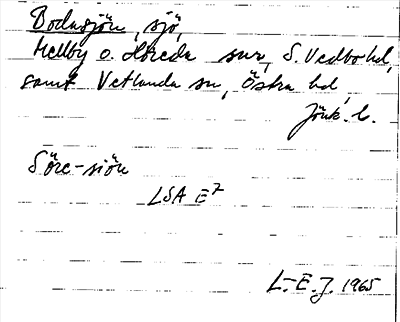 Bodasjön, sjö,
Mellby o. Höreda snr, S. Vedbo hd,
samt Vetlanda sn, Östra hd
Jönk. l.
Söre-sjön
LSA E7
L.-E. J. 1965